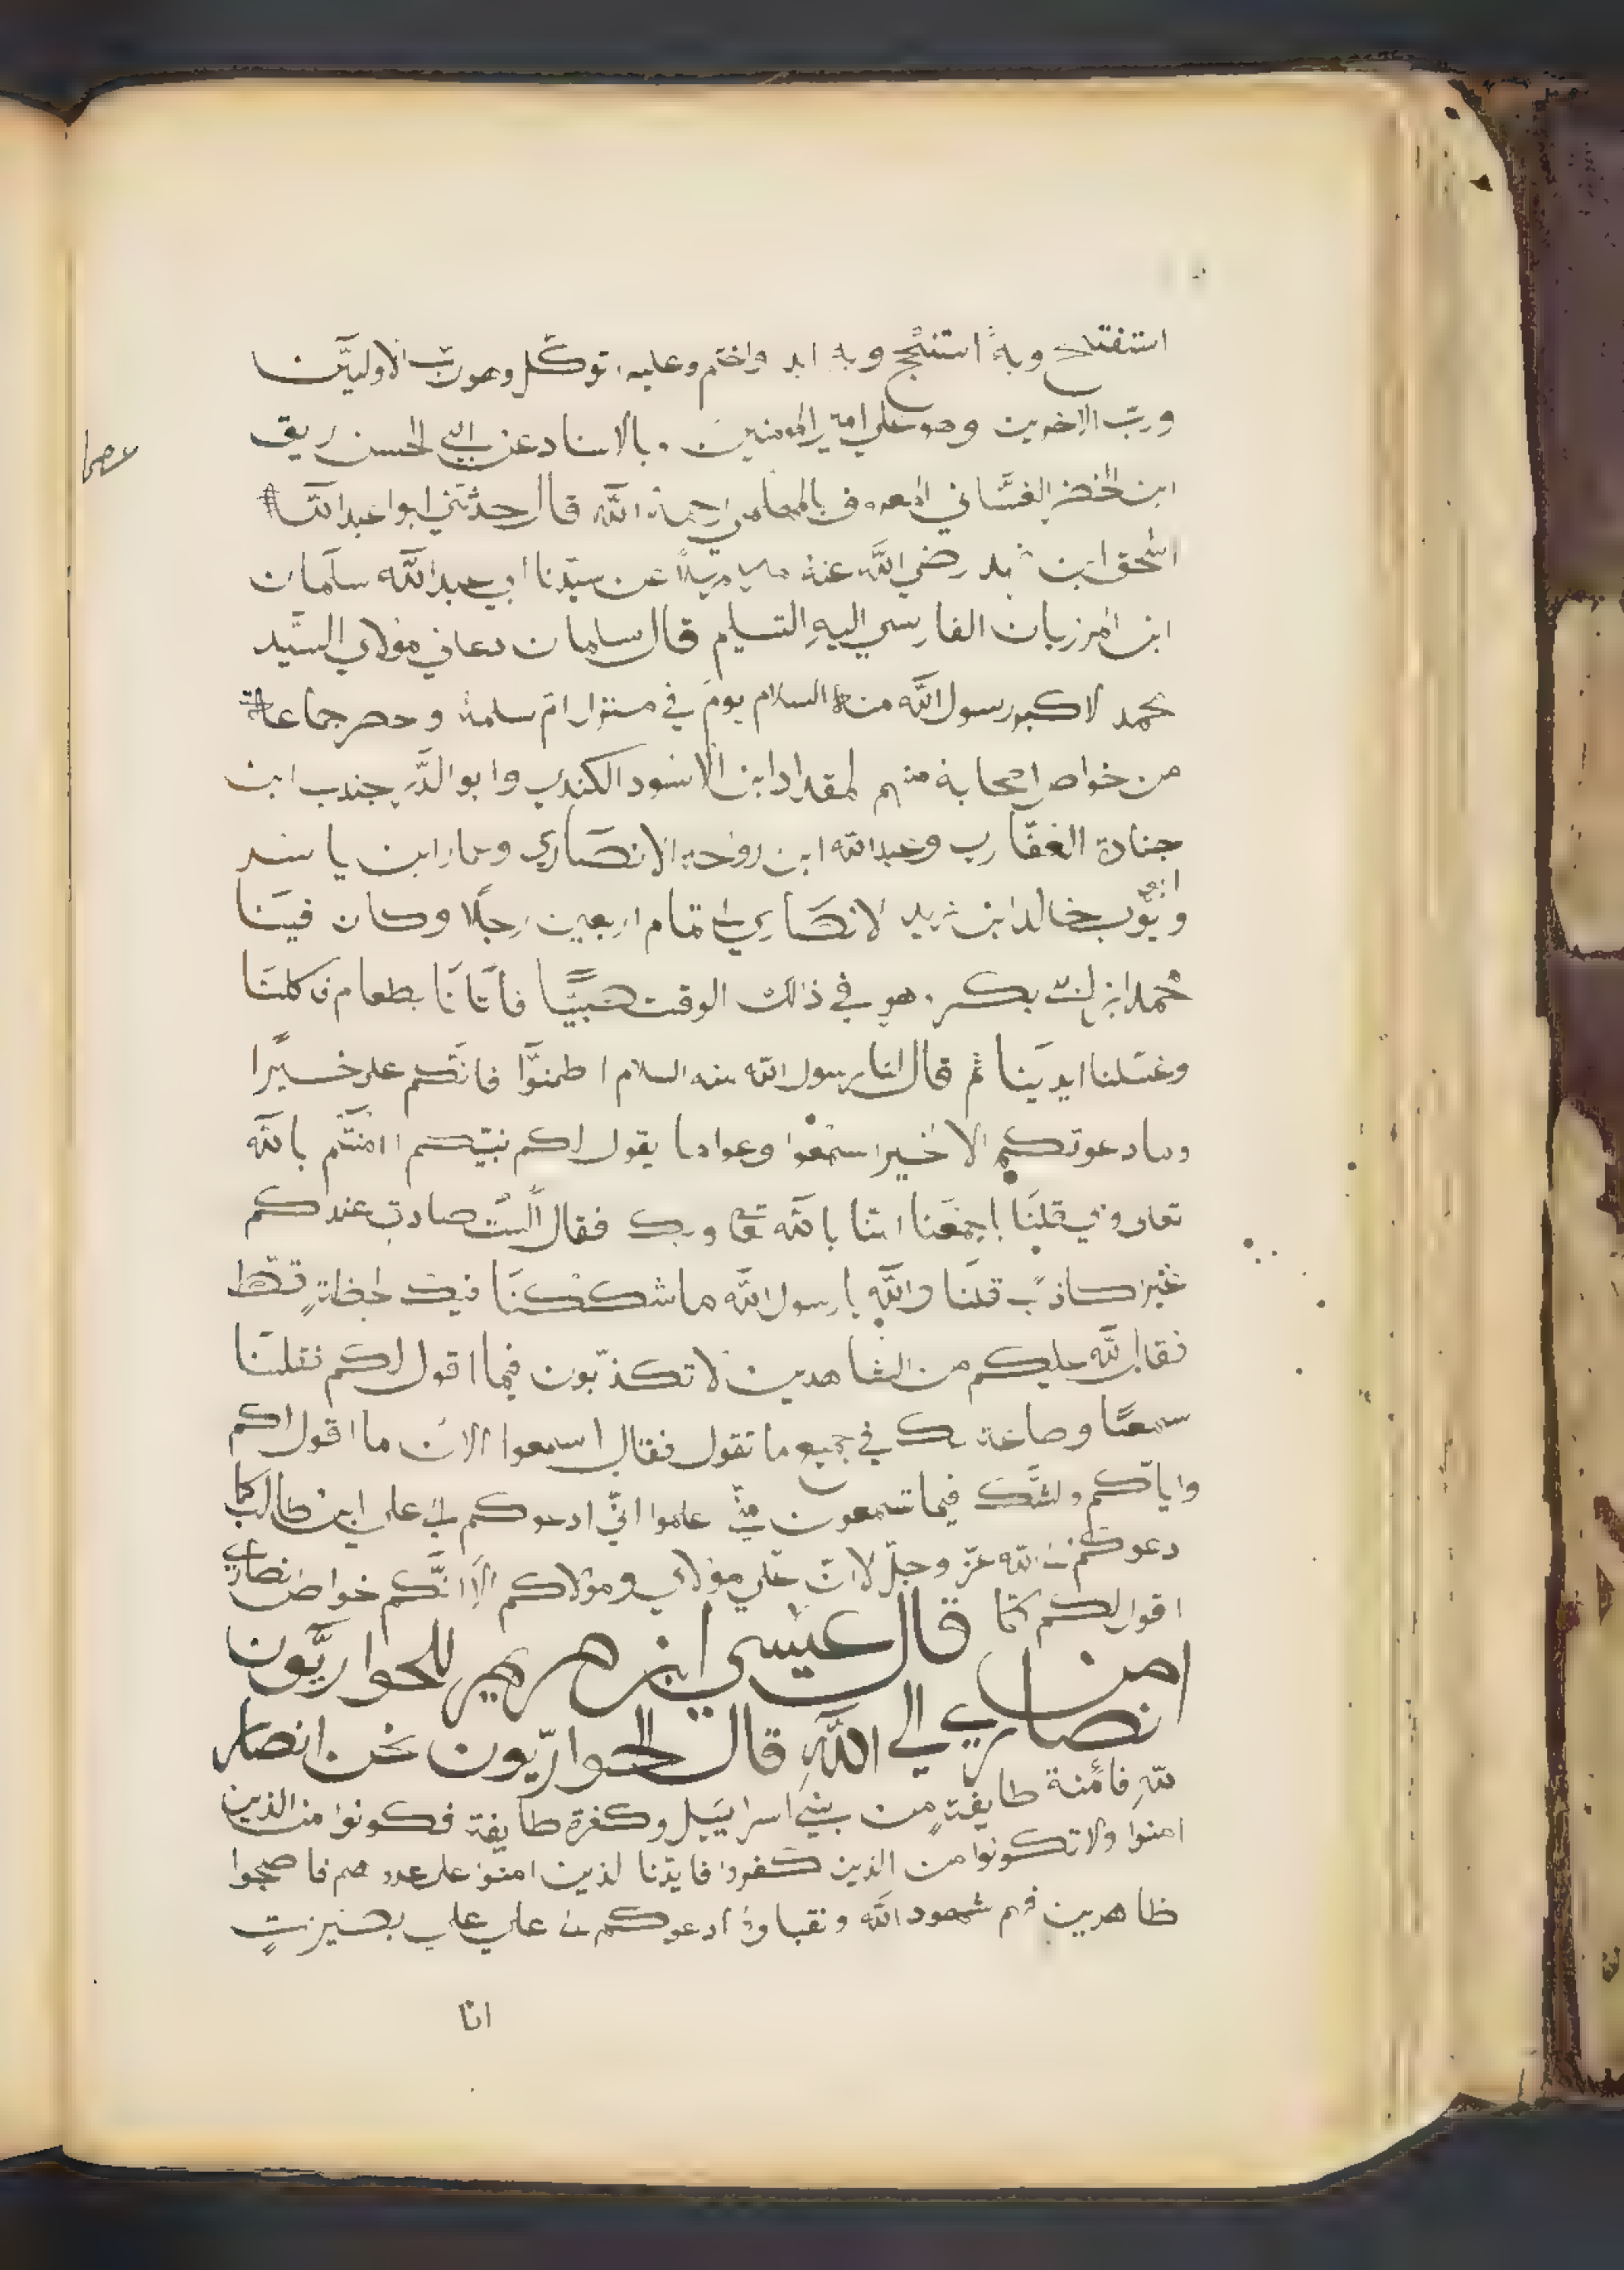 استفتح وبه استنجح وبه ابد واختم وعليه توكّل وهو ربّ الاوليّن
وربّ الاخرين وهو علي امير المومنين وبالاسناد عن ابي الحسن ريق
ابن الخضر الغسّاني المعروف بالمعامي رحمة الله قال حدثني ابوا عبد الله
اسحق ابن رضي الله عنه عن سيّدنا ابي عبد الله سلمان
ابن امرزبان الفارسي اليه التسليم قال سلمان دعاني مولاي السّيد
محمد لاكبر رسول الله منه السلام يوم في منزل امّ سلمة وحضر جماعة
من خواص اصحابه منهم لمقداد ابن الاسود الكندي وابو الذّر جندب ابن
جنادة الغفّاري وعبد الله ابن روحه الانصاري وعمار ابن ياسر
وابو ايّوب خالد ابن زيد لانصاري الى تمام اربعين رجلا وكان فينا
محمد ابن ابي بكر وهو في ذالك الوقت صبيّا فأتانا بطعام فاكلنا
وغسلنا ايدينا ثم قال لنا رسول الله منه السلام اطمنوّا فانّكم على خيرا
وما دعوتكم الا خيرا سمعوا وعوا ما يقول لكم نبيّكم اامنتم بالله
تعالى وبي قلنا اجمعنا امنا بالله تعالى وبك فقال ألست صادق عندكم
غير كاذب قلنا والله يا رسول الله ما شككنا فيك لحظة قطّ
فقال الله عليكم من الشاهدين لا تكذّبون فيما اقول لكم فقلنا
سمعا وطاعة لك في جميع ما تقول فقال اسمعوا الان ما اقول لكم
واياكم ولشّك فيما تسمعون منّي علموا انّي ادعوكم الى علي ابن طالب كما
دعوتكم الى الله عزّ وجلّ لانّ علي مولاي ومولاكم الا انّكم خواص انصاري
اقول لكم كما قال عيسي ابن مريم للحواريّون
من انصاري الي الله قال الحواريّون نحن انصار
لله فامنة طايفة من بني اسراييل وكفرة طايفة فكونوا من الذين
امنوا ولا تكونوا من الذين كفروا فايدنا لذين امنوا على عدوهم فاصبحوا
ظاهرين فهم شهود الله ونقباوه ادعوكم الى علي علي بصيرت
انا